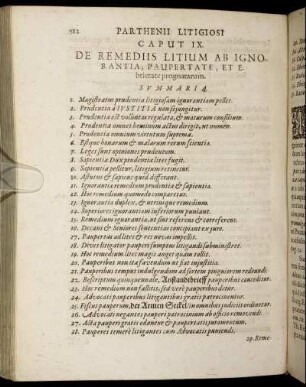 512 PARTHENII LITIGIOSI
CAPUT IX.
DE REMEDIIS LITIUM AB IGNO-
RANTIA, PAUPERTATE, ET E-
brietate prognatarum.
SUMMARIA.
1. Magistratus prudentia litigiosam ignorantiam pellet.
2. Prudentia à IUSTITIA non sejungitur.
3. Prudentia est voluntas regulata, & maturum consilium.
4. Prudentia omnes hominum actus dirigit, ut nomen.
5. Prudentia omnium virtutum suprema.
6. Estque bonarum & malarum rerum scientia.
7. Leges sunt opiniones prudentum.
8. Sapientia Dux prudentia lites fugit.
9. Sapientia pellitur, litigium retinetur.
10. Astutus & sapiens quid different.
11. Ignorantia remedium prudentia & sapientia.
12. Hoc remedium quomodo comparetur.
13. Ignorantia duplex, & utriusque remedium.
14. Superiores ignorantiam inferiorum puniant.
15. Remedium ignorantia, ut sint referens & conferens.
16. Decani & Seniores sententias concipiant ex jure.
17. Paupertas ad litem & rec urias impellit.
18. Dives litigator pauperi sumptus litigandi subministret.
19. Hoc remedium lites magis auget quàm tollit.
20. Pauperibus non ita favendum ne fiat injustitia.
21. Pauperibus tempus indulgendum ad sortem pinguiorem redeundi.
22. Rescriptum quinquennale, Anstandtbrieff pauperibus conceditur.
23. Hoc remedium non fallitis, sed verè pauperibus detur.
24. Advocati pauperibus litigantibus gratis patrocinentur.
25. Fiscus pauperum der Armen Seckel in omnibus judiciis ordinetur.
26. Advocati negantes pauperi patrocinium ab officio removendi.
27. Acta pauperi gratis edantur & paupertatis juramentum.
28. Pauperes temerè litigantes cum Advocatis puniendi.
29. Reme-